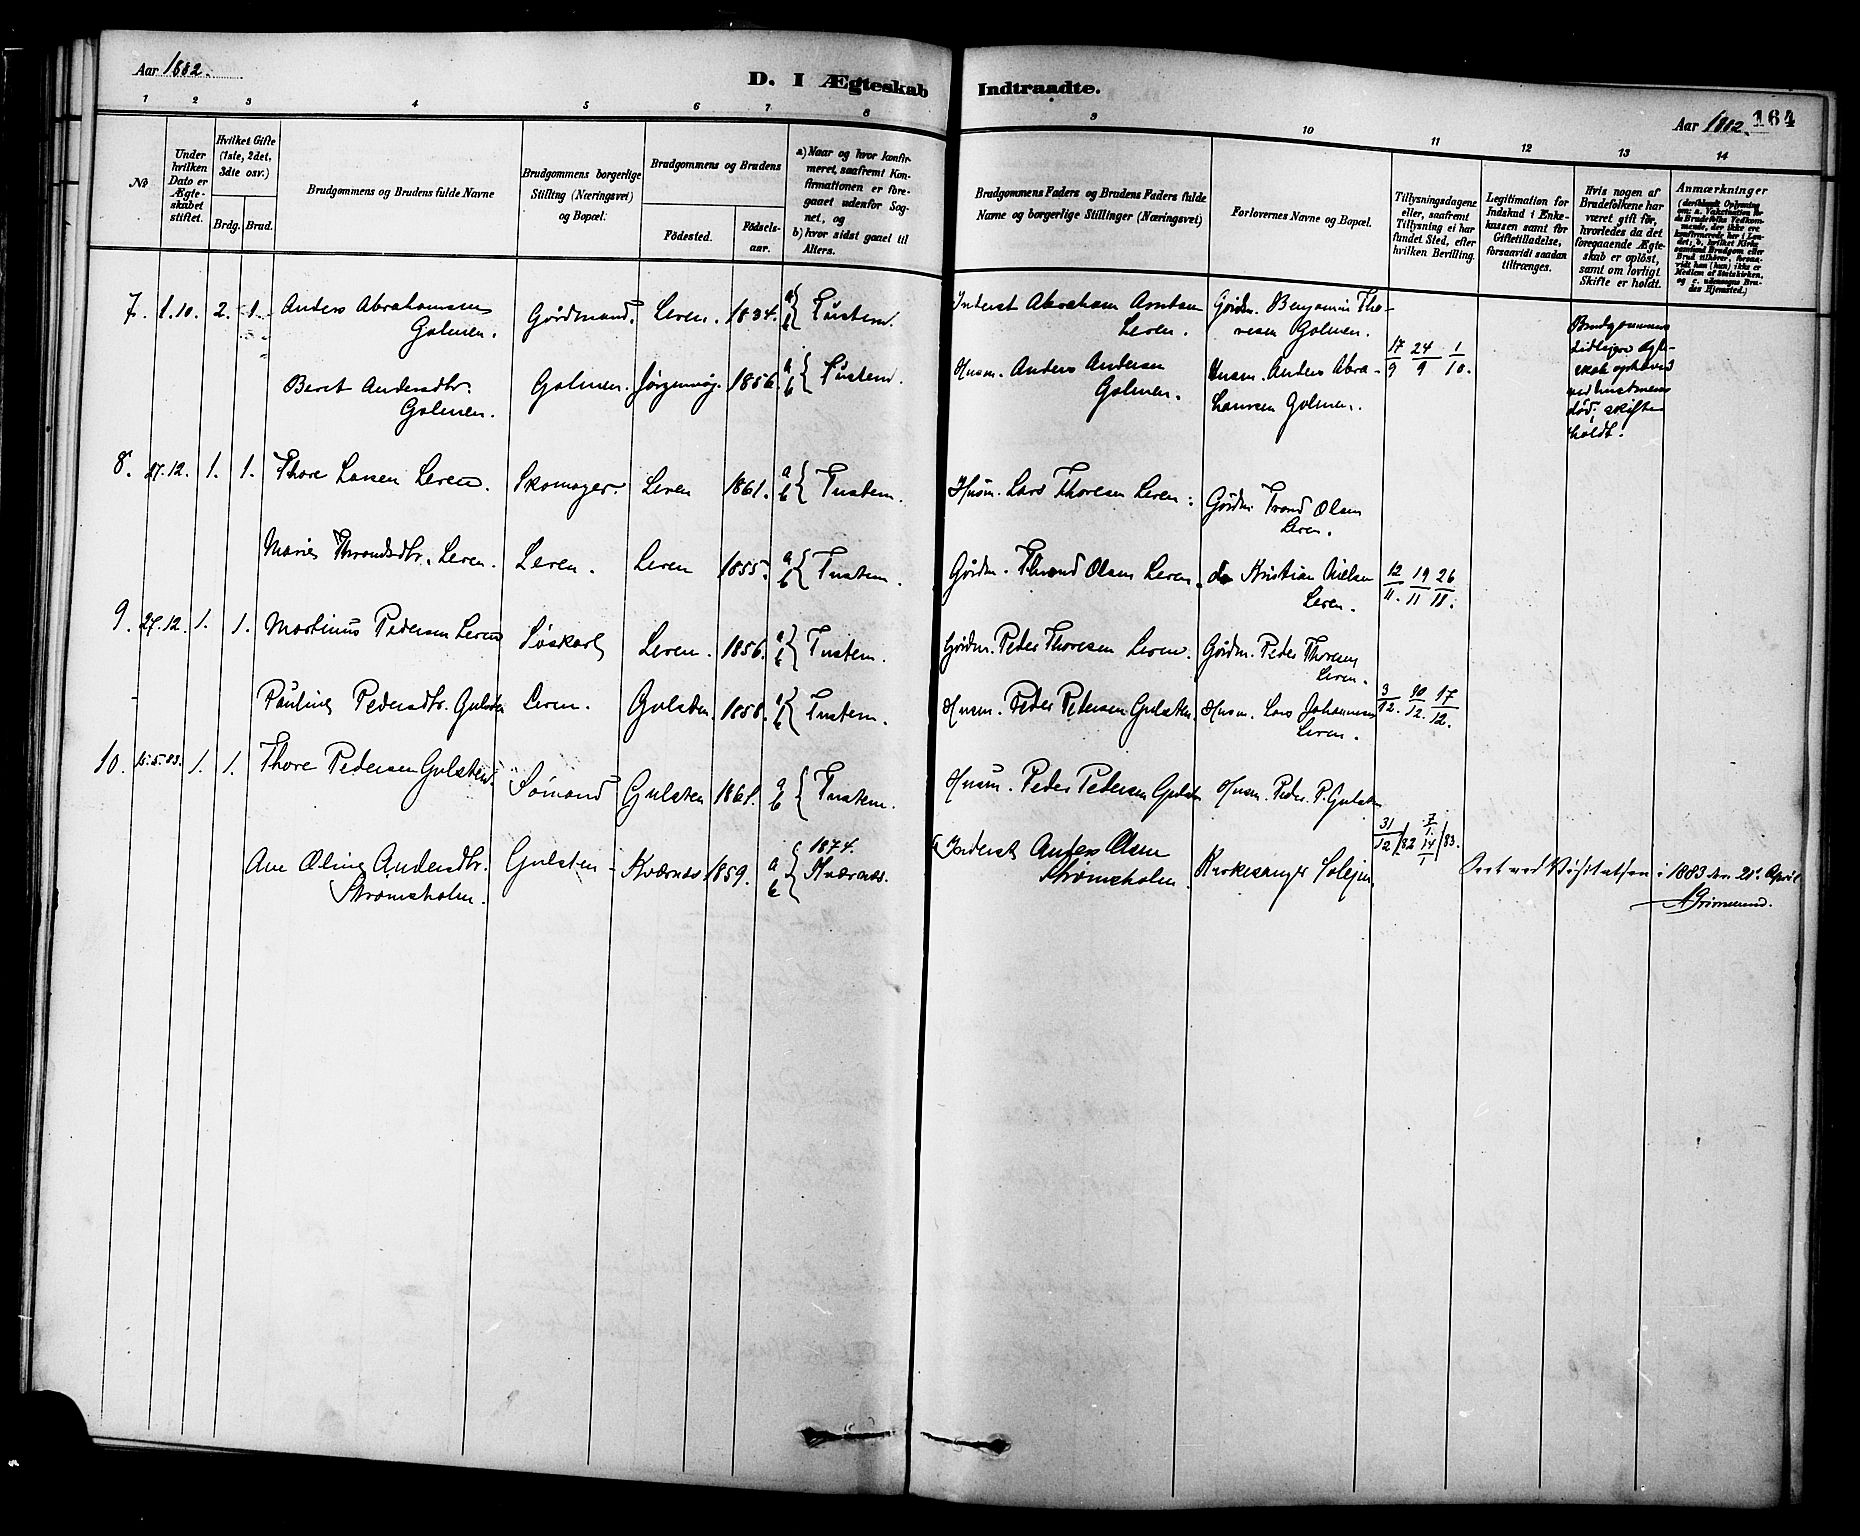 Aar 1882.
D. I Ægteskab Indtraadte.
Aar 1882. 164
1 2 3 4 5 6 7 8 9 10 11 12 13 14
No
Under hvilken Dato er Ægteskabet stiftet.
Hvilket Gifte (1ste, 2det, 3die osv.)
Brdg. Brud.
Brudgommens og Brudens fulde Navne
Brudgommens borgerlige Stilling (Næringsvei) og Bopæl.
Brudgommens og Brudens
Fødested. Fødselsaar.
a) Naar og hvor konfirmeret, saafremt Konfirmationen er foregaaet udenfor Sognet, og
b) hvor sidst gaaet til Alters.
Brudgommens Faders og Brudens Faders fulde Navne og borgerlige Stillinger (Næringsvei)
Forlovernes Navne og Bopæl.
Tillysningsdagene eller, saafremt Tillysning ei har fundet Sted, efter hvilken Bevilling.
Legitimation for Indskud i Enkekassen samt for Giftetilladelse, forsaavidt saadan tiltrænges.
Hvis nogen af Brudefolkene har været gift før, hvorledes da det foregaaende Ægteskab er opløst, samt om lovligt Skifte er holdt.
Anmærkninger
7. 1.10. 2. 1. Anders Abrahamsen Golmen. Gårdmand. Leren. 1834. a b Tustern. Inderst Abraham Arntsen Leren. Gårdm. Benjamin Thoresen Golmen.
Brudgommens tidligere Ægteskab ophævet ved hustruens død, skifte holdt.
Beret Andersdtr. Golmen. Golmen. Jørgenvåg. 1856. a b Tustern. Husm. Anders Andersen Golmen. Husm. Anders Abrahamsen Golmen. 17/9 24/9 1/10.
8. 27.12. 1. 1. Thore Larsen Leren. Skomager. Leren 1861. a b Tustern. Husm. Lars Thoresen Leren. Gårdm. Trond Olsen Leren.
Marie Throndsdtr. Leren. Leren. Leren 1855. a b Tustern. Gårdm. Thrond Olsen Leren. do Kristian Nielsen Leren. 12/11. 19/11 26/11.
9. 27.12. 1. 1. Martinus Pedersen Leren Søskarl Leren. 1856. a b Tustern. Gårdm. Peder Thoresen Leren. Gårdm. Peder Thoresen Leren.
Pauline Pedersdtr. Gulsten Leren. Gulsten. 1858. a b Tustern. Husm. Peder Pedersen Gulsten. Husm. Lars Johannesen Leren. 3/12. 10/12. 17/12.
10. 15.5.83. 1. 1. Thore Pedersen Gulsten. Sømand Gulsten 1861. a b Tustern. Husm. Peder Pedersen Gulsten Husm. Peder P. Gulsten
Ane Oline Andersdtr. Strømsholm. Gulsten Kværnæs 1859. a b 1874. Kværnæs. Inderst Anders Olsen Strømsholm. Kirkesanger Solejm. 31/12/82 7/1. 14/1/83.
Seet ved Visitatsen i 1883 den 21de April
Grimelund.